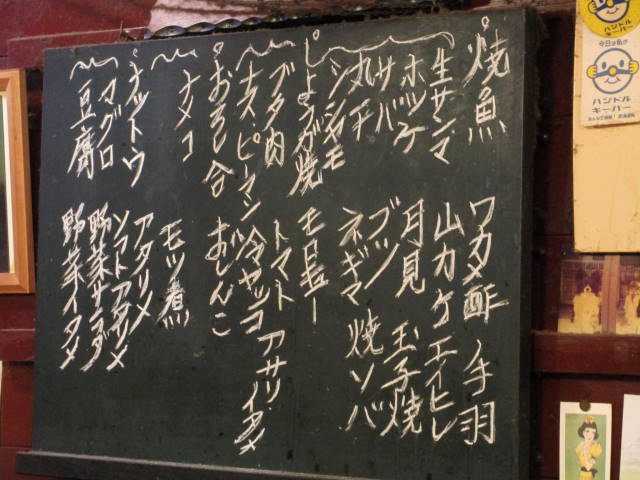 焼魚
生サンマ
ホッケ
サバ
丸干
シシャモ
しょうが焼
ブタ肉
ナス・ピーマン
おろし合
ナメコ
ナットウ
マグロ
豆腐
ワカメ酢
手羽
山カケ
エイヒレ
月見
玉子焼
ブツ
ネギマ
焼ソバ
モロキュー
トマト
アサリ・イタメ
冷ヤッコ
おしんこ
モツ煮
アタリメ
ソフトアタリメ
野菜サラダ
野菜イタメ
ハンドル
キーパー
今日は私が
ハンドル
キーパー